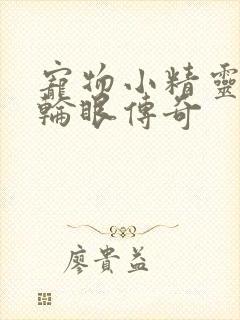 寵物小精靈
輪眼傳奇
廖貴益